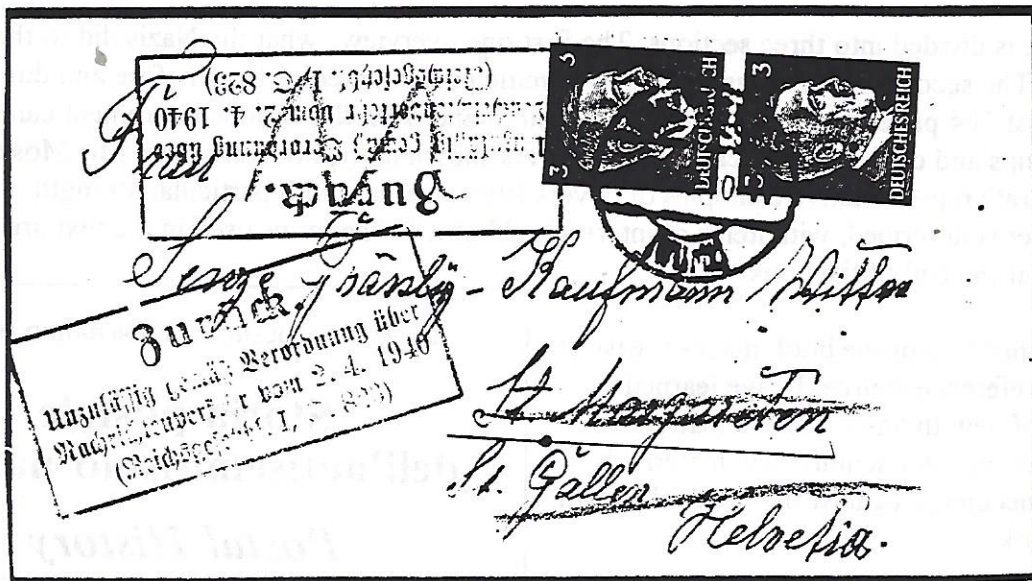 Frau
Zurück.
Unzulässig gemäß Verordnung über
Nachrichtenverkehr vom 2. 4. 1940
(Reichsgesetzbl. I, S. 823)
3 3
DEUTSCHES REICH
3 3
DEUTSCHES REICH
Kaufmann / Witwe
Zurück.
Unzulässig gemäß Verordnung über
Nachrichtenverkehr vom 2. 4. 1940
(Reichsgesetzbl. I, S. 823)
St. Margareten
St. Gallen
Helvetia.